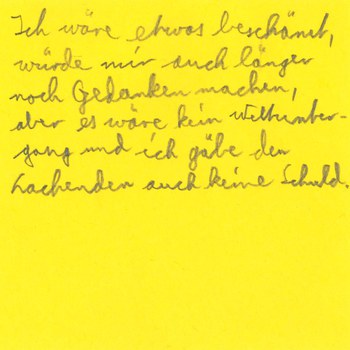 Ich wäre etwas beschämt,
würde mir auch länger
noch Gedanken machen,
aber es wäre kein Weltunter-
gang und ich gäbe den
Lachenden auch keine Schuld.